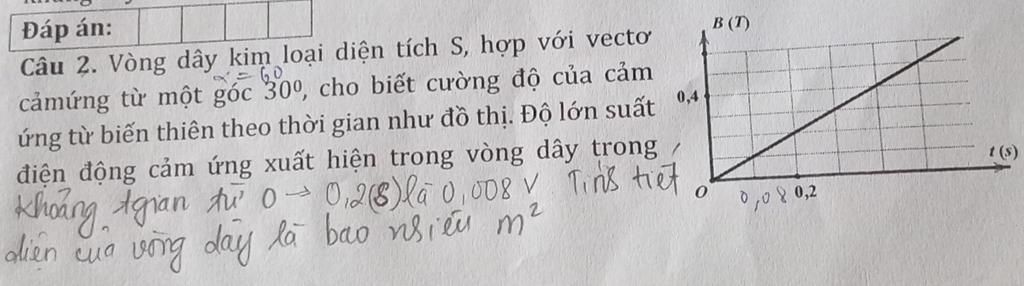 Đáp án:
Câu 2. Vòng dây kim loại diện tích S, hợp với vectơ
α = 60
cảmứng từ một góc 30⁰, cho biết cường độ của cảm
ứng từ biến thiên theo thời gian như đồ thị. Độ lớn suất
điện động cảm ứng xuất hiện trong vòng dây trong
khoảng tgian từ 0 → 0,2(s) là 0,008 V Tính tiết
diện của vòng dây là bao nhiêu m²
B (T)
0,4
t (s)
O
0,08
0,2